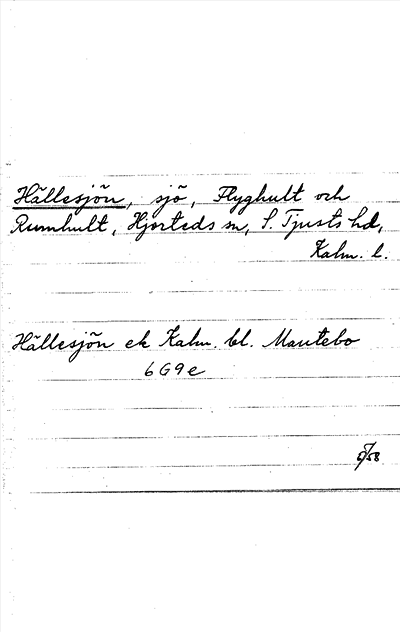 Hällesjön, sjö, Flyghult och
Rumhult, Hjorteds sn, S. Tjusts hd,
Kalm. l.
Hällesjön ek Kalm. bl. Mantebo
6G9e